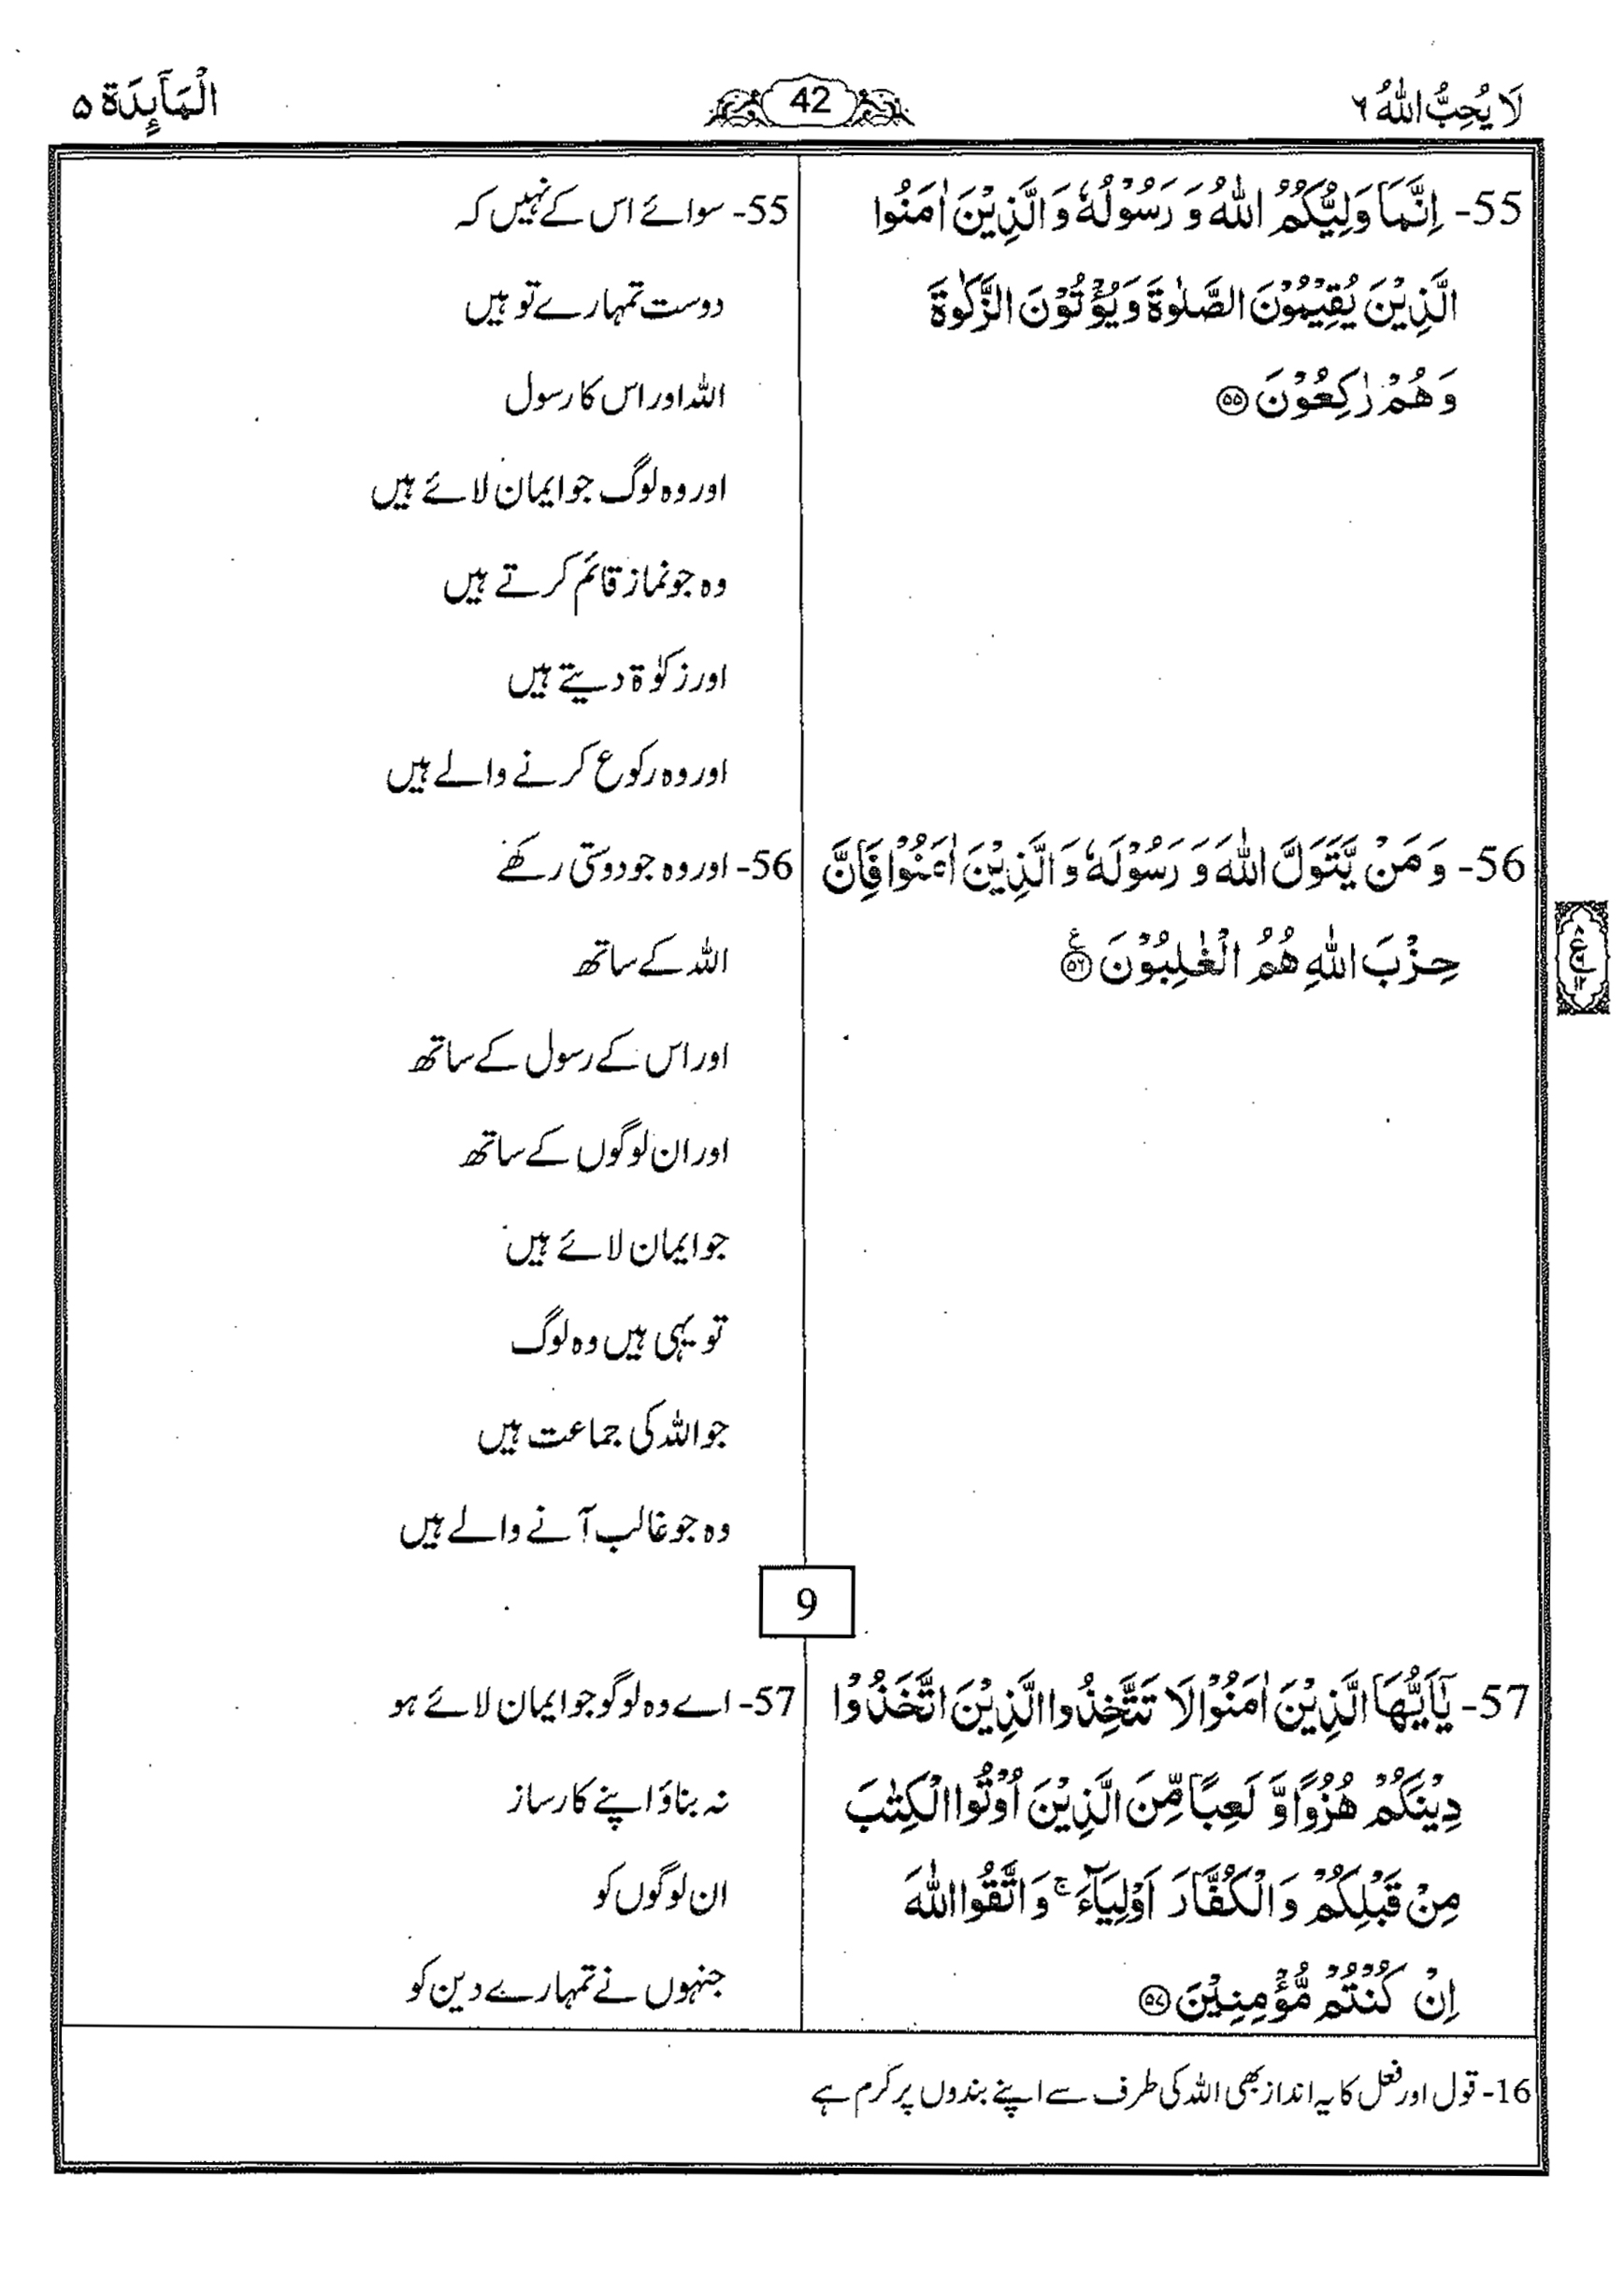 لَا يُحِبُّ اللّٰهُ ٦
42
الْمَآئِدَة ٥
55- اِنَّمَا وَلِيُّكُمُ اللّٰهُ وَ رَسُوْلُهٗ وَ الَّذِيْنَ اٰمَنُوا
الَّذِيْنَ يُقِيْمُوْنَ الصَّلٰوةَ وَ يُؤْتُوْنَ الزَّكٰوةَ
وَ هُمْ رٰكِعُوْنَ ۝٥٥
55- سوائے اس کے نہیں کہ
دوست تمہارے تو ہیں
اللہ اور اس کا رسول
اور وہ لوگ جو ایمان لائے ہیں
وہ جو نماز قائم کرتے ہیں
اور زکوٰۃ دیتے ہیں
اور وہ رکوع کرنے والے ہیں
56- وَ مَنْ يَّتَوَلَّ اللّٰهَ وَ رَسُوْلَهٗ وَ الَّذِيْنَ اٰمَنُوْا فَاِنَّ
حِزْبَ اللّٰهِ هُمُ الْغٰلِبُوْنَ ۝٥٦ ع
56- اور وہ جو دوستی رکھے
اللہ کے ساتھ
اور اس کے رسول کے ساتھ
اور ان لوگوں کے ساتھ
جو ایمان لائے ہیں
تو یہی ہیں وہ لوگ
جو اللہ کی جماعت ہیں
وہ جو غالب آنے والے ہیں
9
57- يٰٓاَيُّهَا الَّذِيْنَ اٰمَنُوْا لَا تَتَّخِذُوا الَّذِيْنَ اتَّخَذُوْا
دِيْنَكُمْ هُزُوًا وَّ لَعِبًا مِّنَ الَّذِيْنَ اُوْتُوا الْكِتٰبَ
مِنْ قَبْلِكُمْ وَ الْكُفَّارَ اَوْلِيَآءَ ۚ وَ اتَّقُوا اللّٰهَ
اِنْ كُنْتُمْ مُّؤْمِنِيْنَ ۝٥٧
57- اے وہ لوگو جو ایمان لائے ہو
نہ بناؤ اپنے کارساز
ان لوگوں کو
جنہوں نے تمہارے دین کو
16- قول اور فعل کا یہ انداز بھی اللہ کی طرف سے اپنے بندوں پر کرم ہے